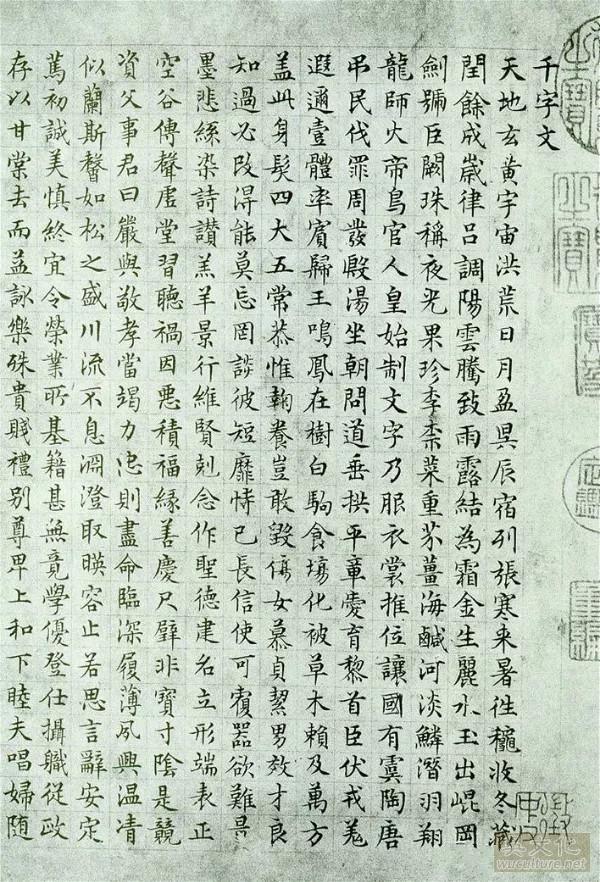 千字文
天地玄黃宇宙洪荒日月盈昃辰宿列張寒来暑往穐收冬藏
閏餘成歲律呂調陽雲騰致雨露結為霜金生麗水玉出崐岡
劍號巨闕珠稱夜光果珍李柰菜重芥薑海鹹河淡鱗潛羽翔
龍師火帝鳥官人皇始制文字乃服衣裳推位讓國有虞陶唐
弔民伐罪周發殷湯坐朝問道垂拱平章愛育黎首臣伏戎羌
遐邇壹體率賓歸王鳴鳳在樹白駒食場化被草木賴及萬方
蓋此身髮四大五常恭惟鞠養豈敢毀傷女慕貞潔男效才良
知過必改得能莫忘罔談彼短靡恃己長信使可覆器欲難量
墨悲絲染詩讚羔羊景行維賢剋念作聖德建名立形端表正
空谷傳聲虛堂習聽禍因惡積福緣善慶尺璧非寶寸陰是競
資父事君曰嚴與敬孝當竭力忠則盡命臨深履薄夙興温凊
似蘭斯馨如松之盛川流不息淵澄取暎容止若思言辭安定
篤初誠美慎終宜令榮業所基籍甚無竟學優登仕攝職從政
存以甘棠去而益詠樂殊貴賤禮別尊卑上和下睦夫唱婦隨
wuculture.net